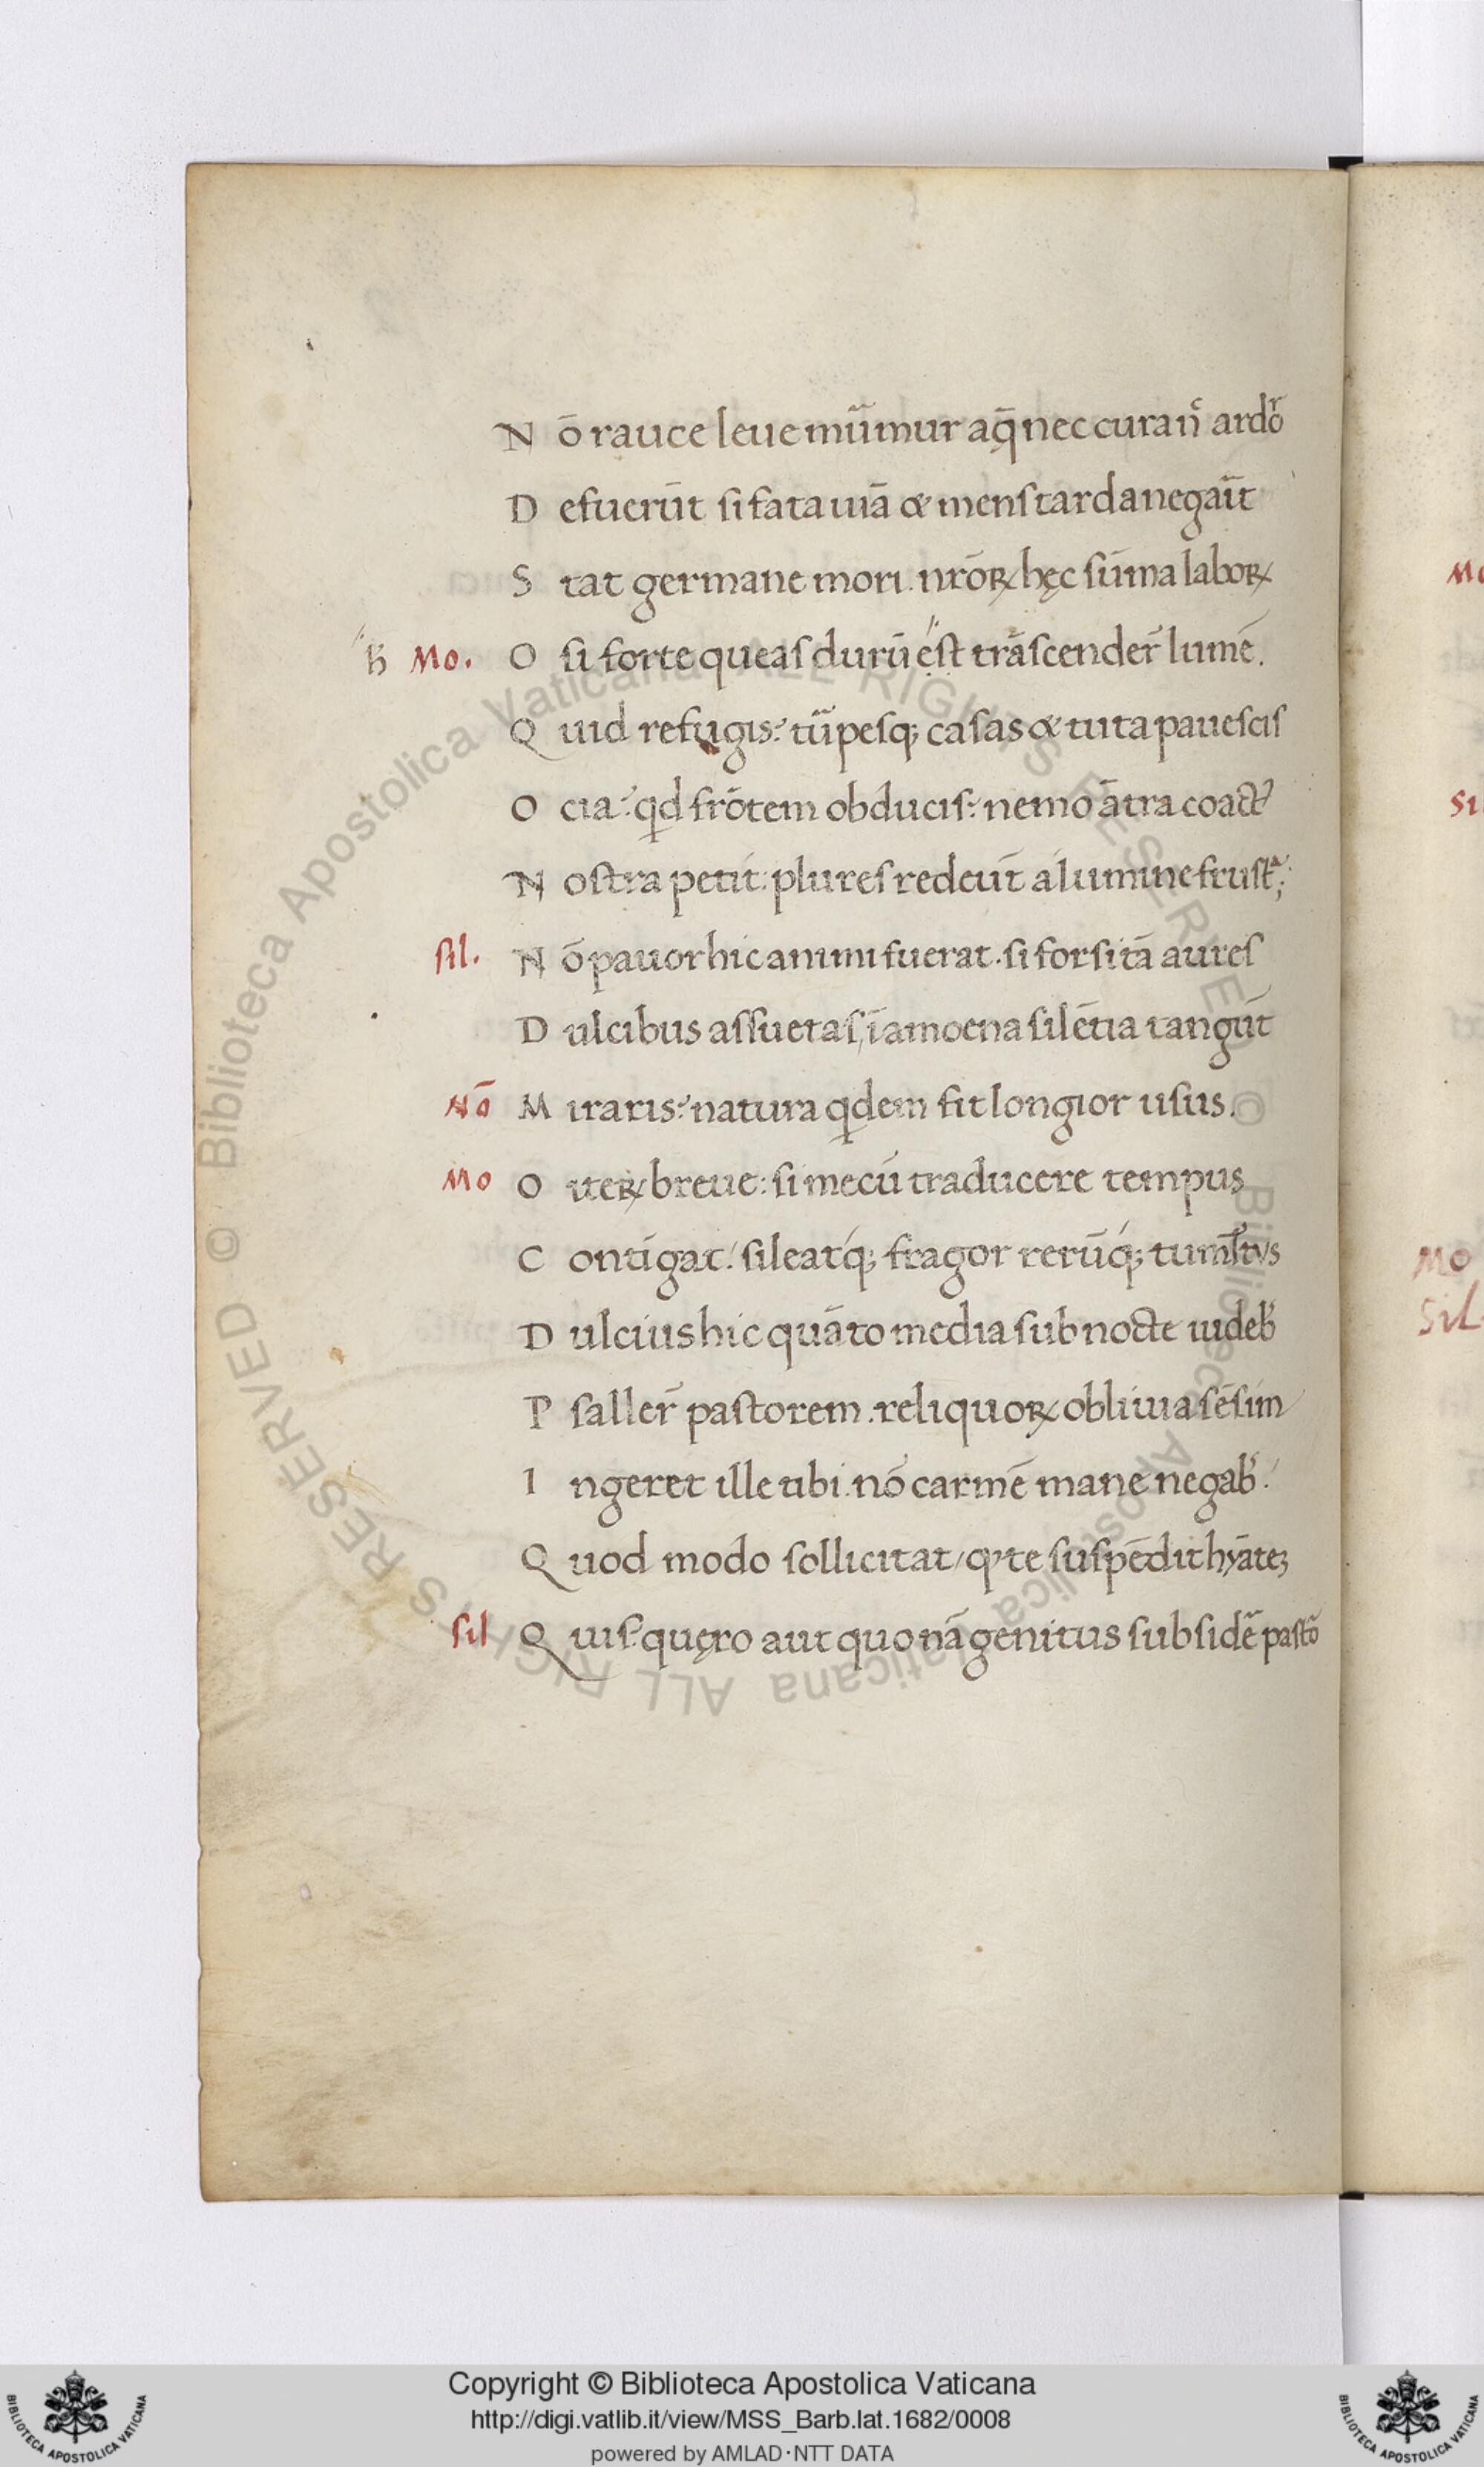 N ō rauce leue mũmur aq̄ nec curan̄ ardoʳ
D efuerūt si fata uiā & mens tarda negaĩt
S tat germane mori. nrōꝝ hęc sūma laboꝝ
ß Mo. O si forte queas durū est trāscender̄ limē.
Q uid refugis? tũpesq; casas & tuta pauescis
O cia? qd frōtem obducis? nemo ātra coactꝰ
N ostra petit: plures redeūt a limine frustᵃ;
sil. N ō pauor hic animi fuerat. si forsitā aures
D ulcibus assuetas, īamoena silētia tangūt
Nō M iraris? natura qdem fit longior usus.
Mo O iteꝝ breue: si mecū traducere tempus
C ontigat! sileatq; fragor rerūq; tumłtus
D ulcius hic quāto media sub nocte uideb̕
P saller̄ pastorem. reliquoꝝ obliuia sēsim
I ngeret ille tibi. nō carmē mane negab̕.
Q uod modo sollicitat, qꝰ te suspēdit hyātē
sil Q uis? quęro aut quonā genitus sub sidē pastō
Mo
Si
Mo
Sil
Copyright © Biblioteca Apostolica Vaticana
http://digi.vatlib.it/view/MSS_Barb.lat.1682/0008
powered by AMLAD·NTT DATA
BIBLIOTECA APOSTOLICA VATICANA
BIBLIOTECA APOSTOLICA VATICANA
© Biblioteca Apostolica Vaticana ALL RIGHTS RESERVED © Biblioteca Apostolica Vaticana ALL RIGHTS RESERVED